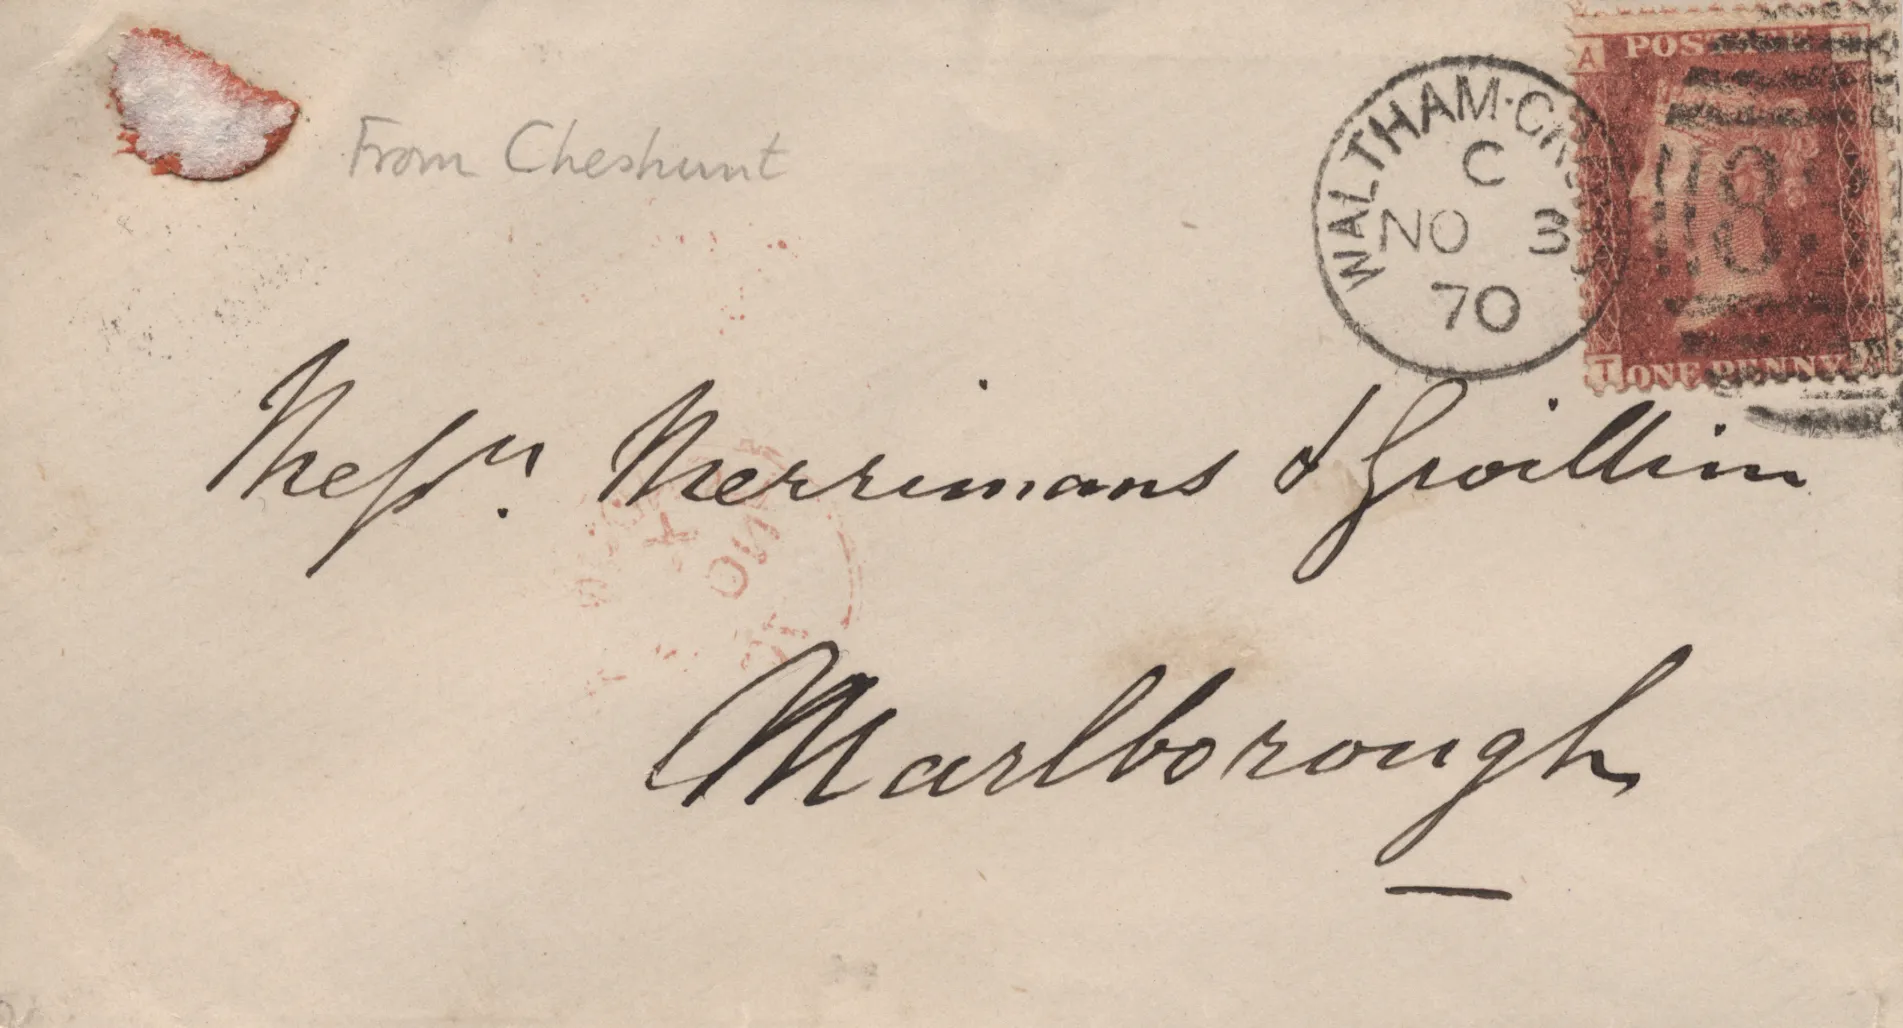 From Cheshunt
WALTHAM·CR
C
NO 3
70
A
POSTAGE
T
ONE PENNY
Messrs. Merrimans & Gwillim
Marlborough
NO